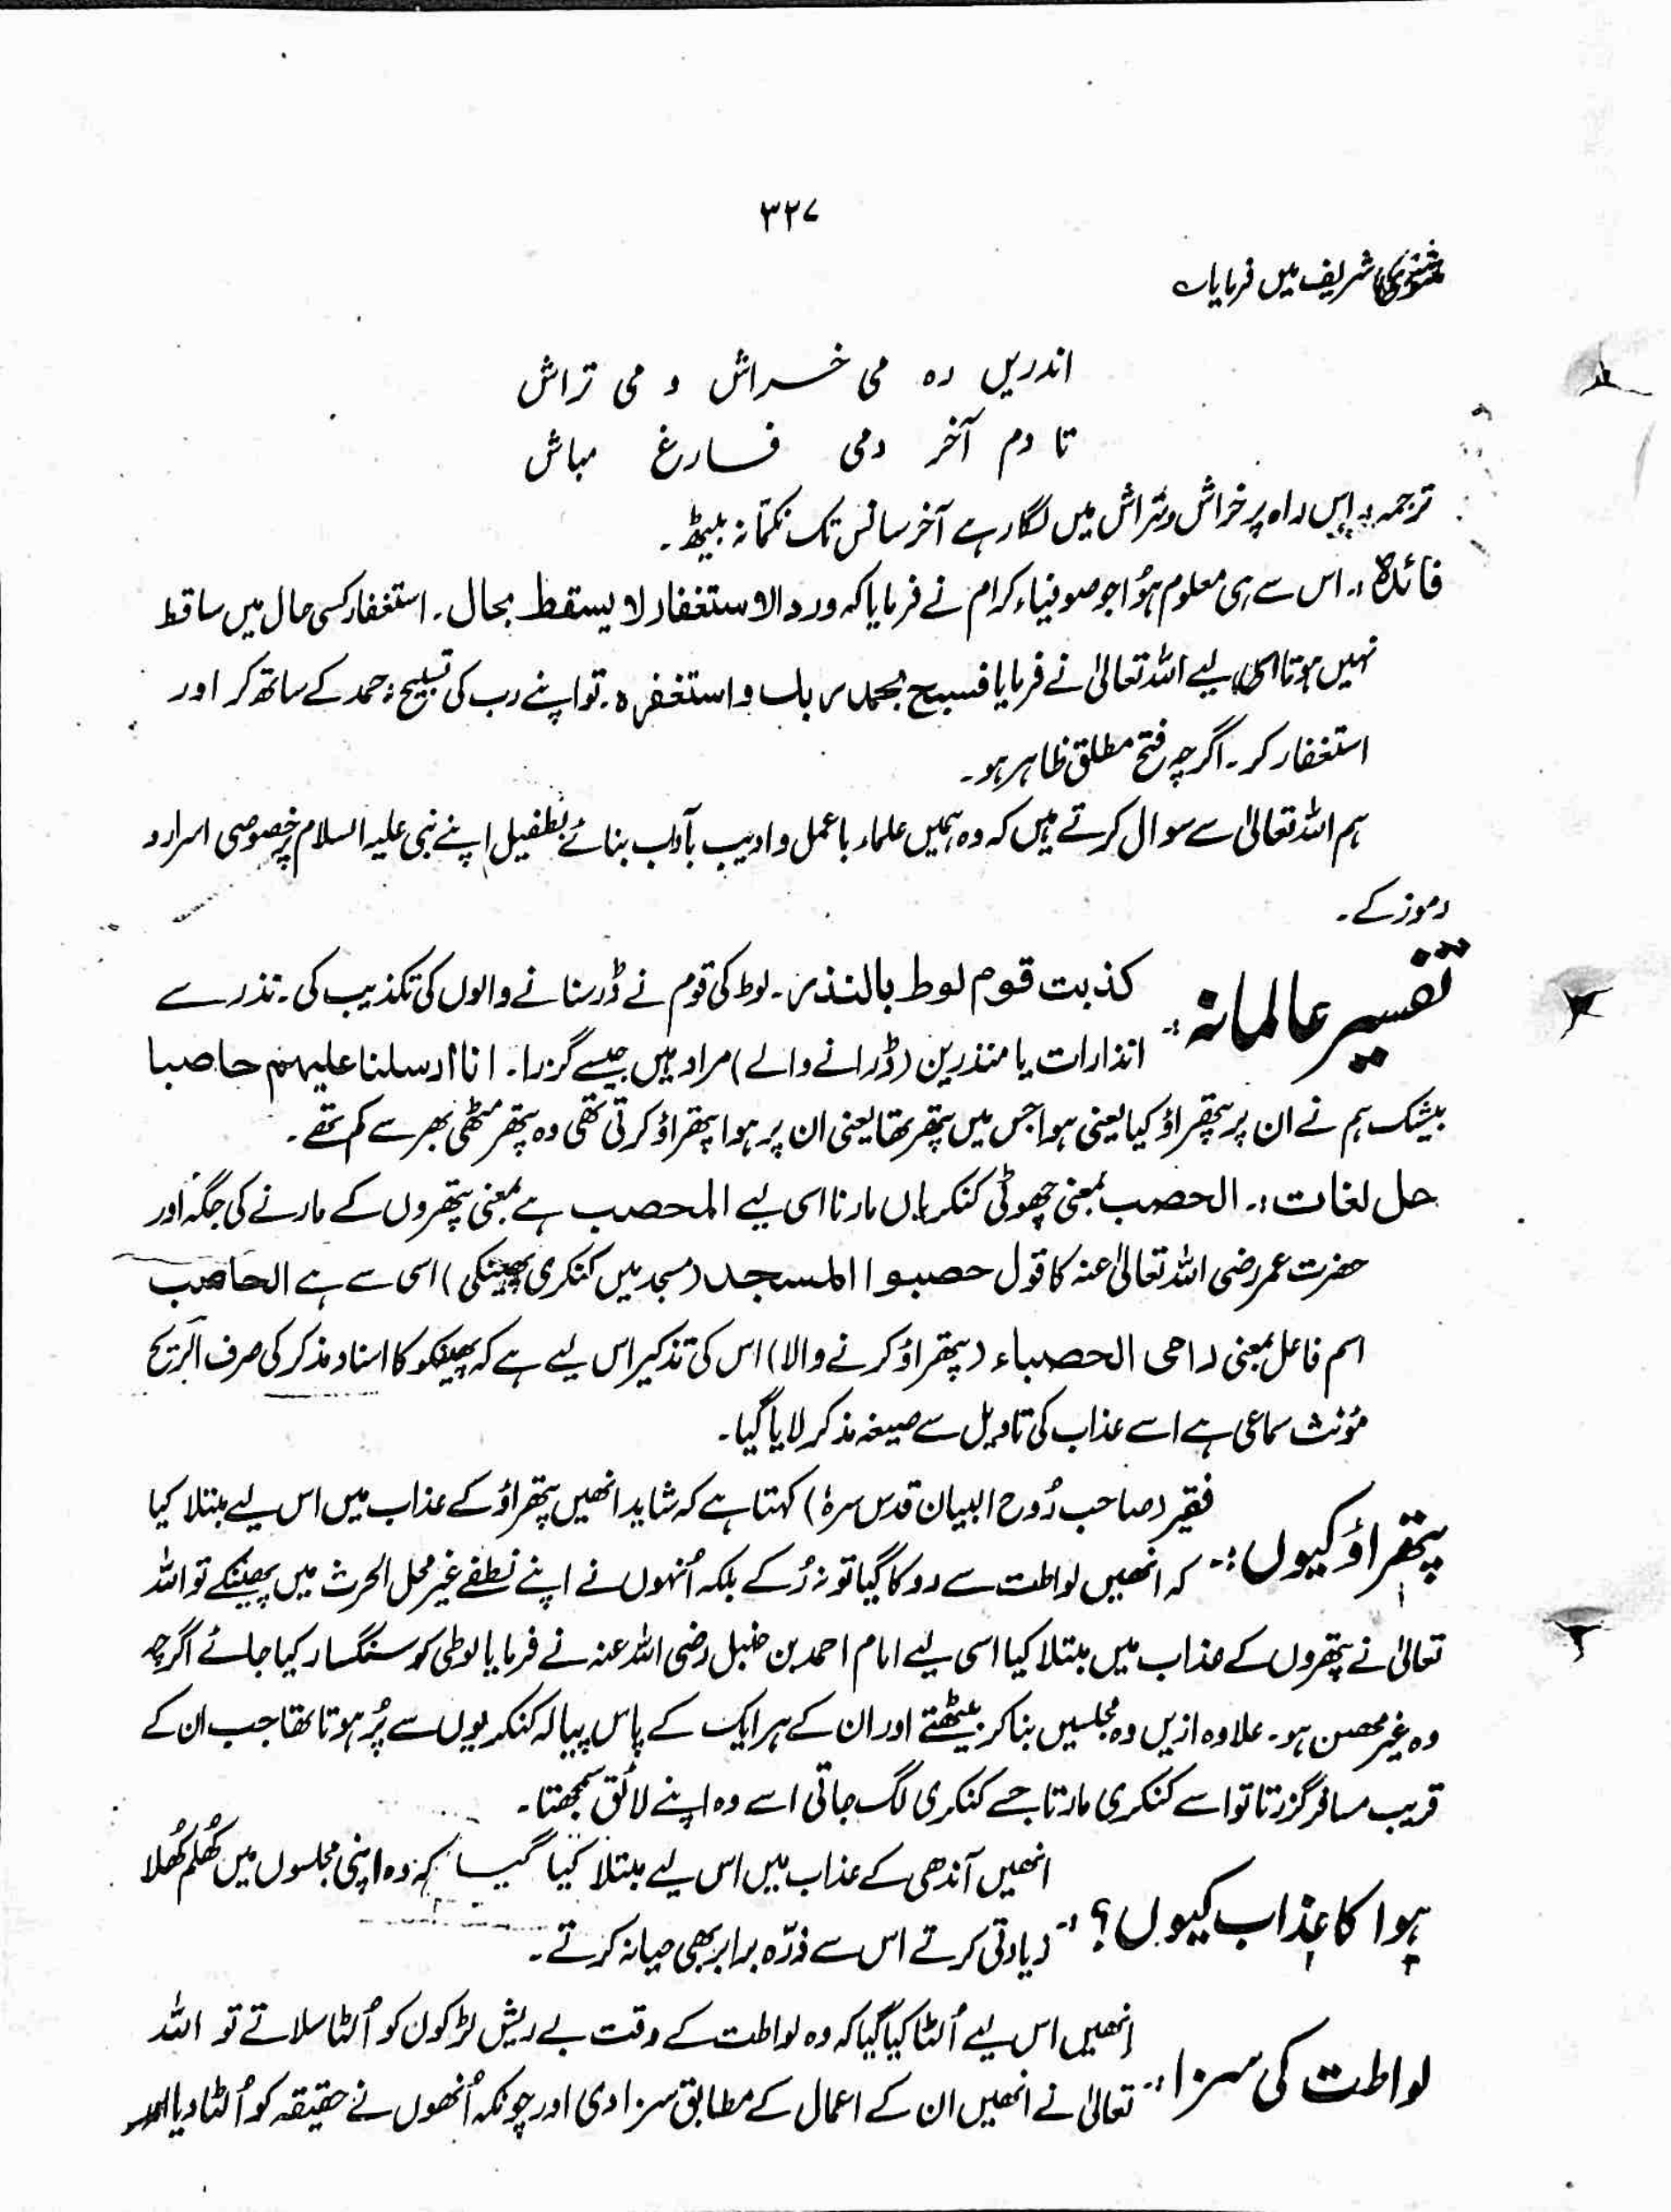 ۳۲۷
مثنوی شریف میں فرمایا ؎
اندریں رہ می خراش و می تراش
تا دم آخر دمی فارغ مباش
ترجمہ :۔ اس راہ پر خراش و تراش میں لگا رہے آخر سانس تک نکمّا نہ بیٹھ ۔
فائدہ :۔ اس سے ہی معلوم ہُوا جو صوفیاء کرام نے فرمایا کہ ورد الاستغفار لا یسقط بحال ۔ استغفار کسی حال میں ساقط
نہیں ہوتا اسی لیے اللہ تعالیٰ نے فرمایا فسبح بحمد ربک واستغفرہ ۔ تو اپنے رب کی تسبیح ، حمد کے ساتھ کر اور
استغفار کر ۔ اگرچہ فتح مطلق ظاہر ہو ۔
ہم اللہ تعالیٰ سے سوال کرتے ہیں کہ وہ ہمیں علماء باعمل و ادیب بآداب بنائے بطفیل اپنے نبی علیہ السلام پر خصوصی اسرار و
رموز کے ۔
تفسیر عالمانہ :۔ کذبت قوم لوط بالنذر ۔ لوط کی قوم نے ڈر سنانے والوں کی تکذیب کی ۔ نذر سے
انذارات یا منذرین (ڈرانے والے) مراد ہیں جیسے گزرا ۔ انا ارسلنا علیہم حاصبا
بیشک ہم نے ان پر پتھراؤ کیا یعنی ہوا جس میں پتھر تھا یعنی ان پر ہوا پتھراؤ کرتی تھی وہ پتھر مٹھی بھر سے کم تھے ۔
حل لغات :۔ الحصب بمعنی چھوٹی کنکریاں مارنا اسی لیے المحصب ہے بمعنی پتھروں کے مارنے کی جگہ اور
حضرت عمر رضی اللہ تعالیٰ عنہ کا قول حصبوا المسجد (مسجد میں کنکری پھینکی) اسی سے ہے الحاصب
اسم فاعل بمعنی رامی الحصباء (پتھراؤ کرنے والا) اس کی تذکیر اس لیے ہے کہ پھینکو کا اسناد مذکر کی صرف الریح
مؤنث سماعی ہے اسے عذاب کی تاویل سے صیغہ مذکر لایا گیا ۔
پتھراؤ کیوں :۔ فقیر (صاحب رُوح البیان قدس سرہٗ) کہتا ہے کہ شاید انھیں پتھراؤ کے عذاب میں اس لیے مبتلا کیا
کہ انھیں لواطت سے روکا گیا تو نہ رُکے بلکہ اُنہوں نے اپنے نطفے غیر محل الحرث میں پھینکے تو اللہ
تعالیٰ نے پتھروں کے عذاب میں مبتلا کیا اسی لیے امام احمد بن حنبل رضی اللہ عنہ نے فرمایا لوطی کو سنگسار کیا جائے اگرچہ
وہ غیر محصن ہو ۔ علاوہ ازیں وہ مجلسیں بنا کر بیٹھتے اور ان کے ہر ایک کے پاس پیالہ کنکریوں سے پُر ہوتا تھا جب ان کے
قریب مسافر گزرتا تو اسے کنکری مارتا جسے کنکری لگ جاتی اسے وہ اپنے لائق سمجھتا ۔
ہوا کا عذاب کیوں ؟ :۔ انھیں آندھی کے عذاب میں اس لیے مبتلا کیا گیا کہ وہ اپنی مجلسوں میں کُھلم کُھلا
زیادتی کرتے اس سے ذرّہ برابر بھی حیا نہ کرتے ۔
لواطت کی سزا :۔ انھیں اس لیے اُلٹا کیا گیا کہ وہ لواطت کے وقت بے ریش لڑکوں کو اُلٹا سلاتے تو اللہ
تعالیٰ نے انھیں ان کے اعمال کے مطابق سزا دی اور چونکہ اُنھوں نے حقیقہ کو اُلٹا دیا